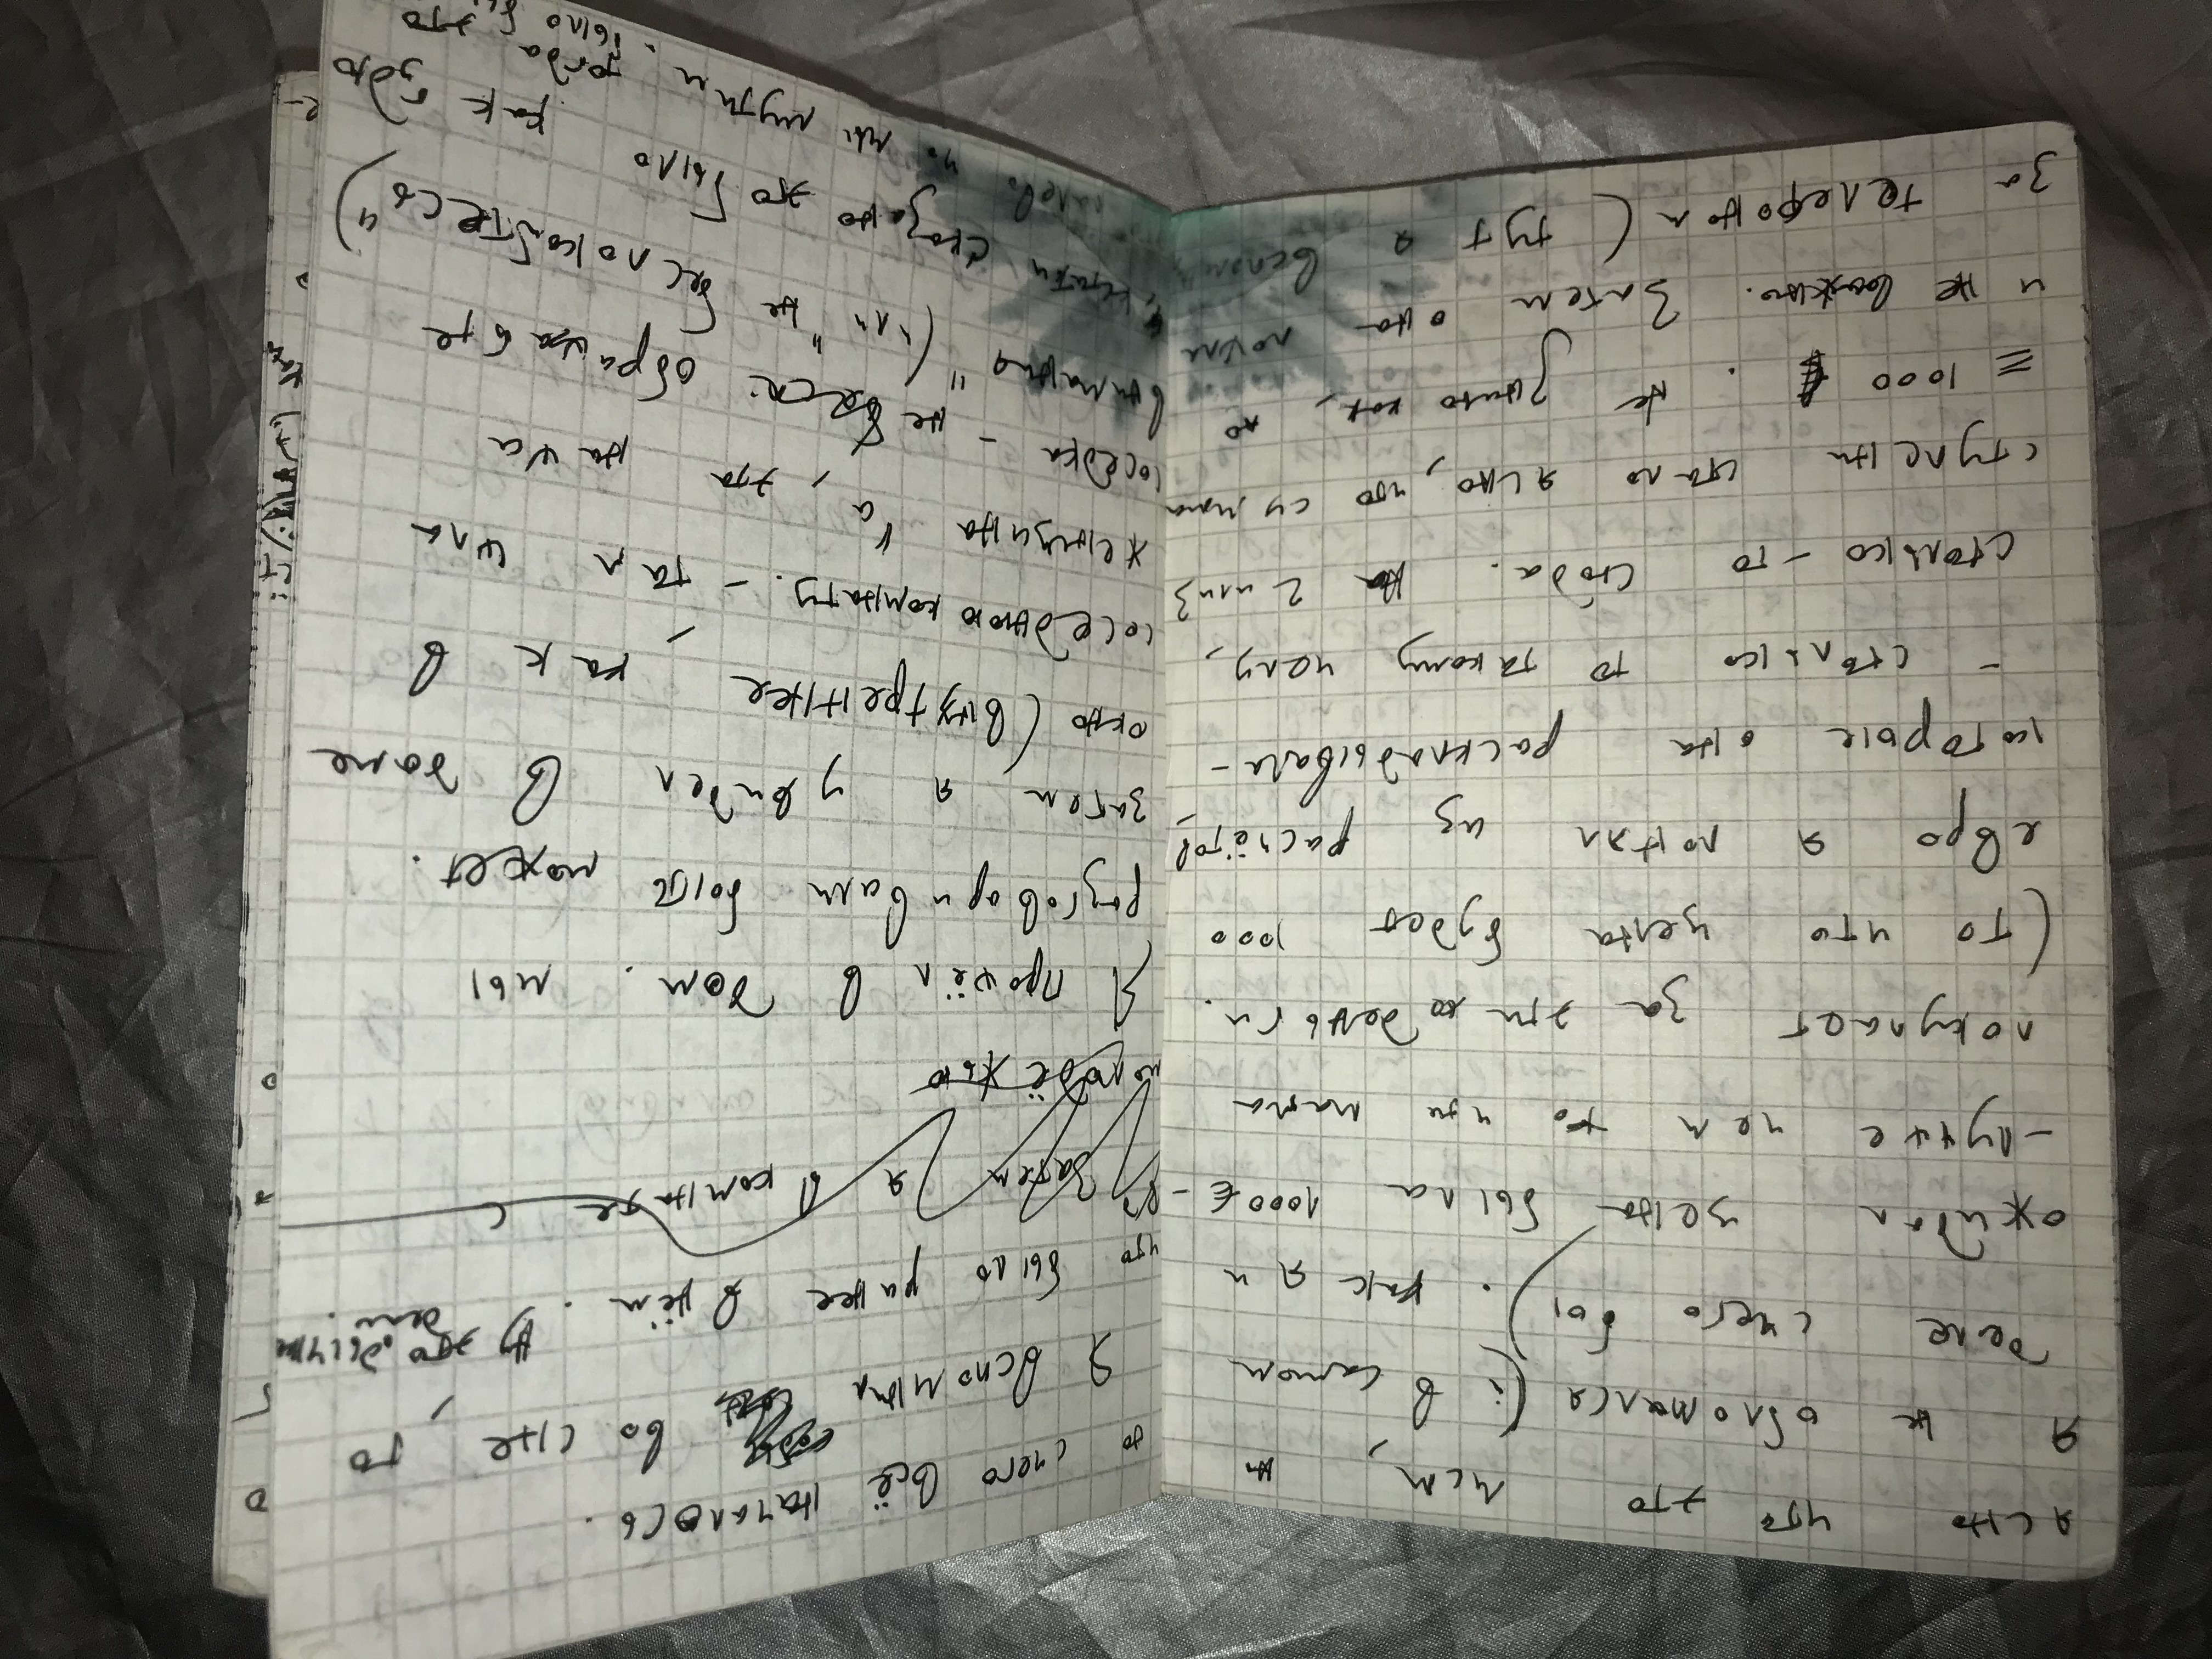 ясно что это мсм, но
я не обломался (и в самом
деле с чего бы). как я и
ожидал цена была 1000 € -
- лучше чем то что мама
покупает за эти деньги.
(то что цена будет 1000
евро я понял из расчётов,
которые она раскладывала -
- столько то такому челу,
столько - то сюда. На 2 или 3
ступени стало ясно, что сумма
≡ 1000 €. Не знаю как, но
и не важно. Затем она пошла
за телефоном (тут я вспомн
с чего всё началось.
Я вспомнил во сне, то
что было ранее в нём. Ну это
дело.
Затем я в комнате с
молодёжью
Я прошёл в дом. мы
разговаривали быть может.
затем я увидел в доме
окно (внутреннее, как в
соседнюю комнату. - там шла
женщина "а, эта наша
соседка - не обращайте
внимания" (или "не беспокойтесь")
кстати сказано это было как будто
палево что мы мутим. тогда
было бы это